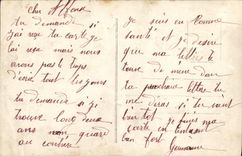 cher Alfonse
Tu demande si
j'ai une ta carte je
l'ai eue mais nous
avons pas le temps
d'écrir tout les jours
tu demande si je
trouve long deux
ans non
au contraire
je suis en bonne
santé et je désire
que ma lettre te
trouve de même dans
ta prochaine lettre tu
me diras si tu vient
bientôt je finis ma
carte en
bien fort
Germaine